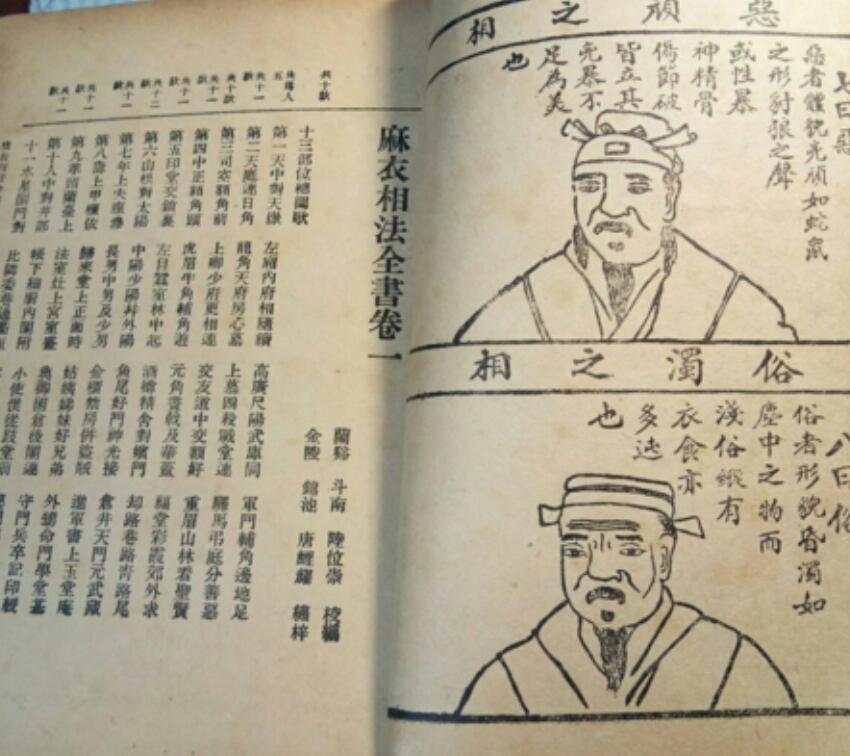 惡頑之相
七曰惡
惡者體貌兇頑如蛇鼠
之形豺狼之聲
或性暴
神精骨
傷節破
皆立其
兇暴不
足為美
也
俗濁之相
八曰俗
俗者形貌昏濁如
塵中之物而
淺俗縱有
衣食亦
多迍
也
麻衣相法全書卷一
蘭谿 斗南 陸位崇 校編
金陵 錦池 唐鯉耀 繡梓
十三部位總圖歌
第一天中對天嶽 左廂內府相隨續 高廣尺陽武庫同 軍門輔角邊地足
第二天庭連日角 龍角天府房心墓 上墓四殺戰堂連 驛馬弔庭分善惡
第三司空額角前 上卿少府更相連 交友道中交額好 重眉山林看聖賢
第四中正額角頭 虎眉牛角輔角遊 元角斧戟及華蓋 福堂彩霞郊外求
第五印堂交鎖裏 左目蠶室林中起 酒樽精舍對嬪門 劫路巷路青路尾
第六山根對太陽 中陽少陽幷外陽 角尾奸門神光接 倉井天門元武藏
第七年上夫座參 長男中男及少男 金櫃禁房併盜賊 遊軍書上玉堂庵
第八壽上甲櫃依 歸來堂上正面時 姑姨姊妹好兄弟 外甥命門學堂基
第九準頭蘭臺上 法室灶上宮室盛 典御園倉後閣連 守門兵卒記印綬
第十人中對井部 帳下細廚內閣附 小使僕從妓堂前
十一水星閣門對 比鄰委巷通衢至
共十訣